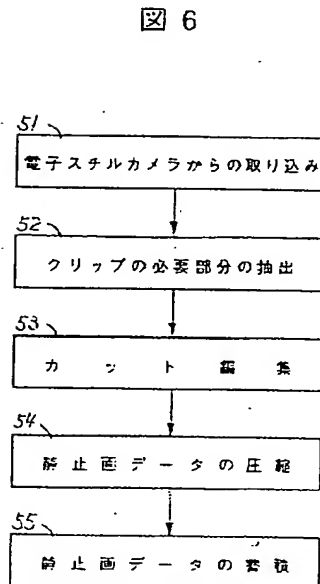 図 6
51
電子スチルカメラからの取り込み
52
クリップの必要部分の抽出
53
カット編集
54
静止画データの圧縮
55
静止画データの蓄積